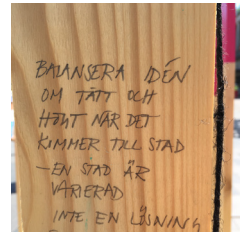 BALANSERA IDÉN
OM TÄTT OCH
HÖGT NÄR DET
KIMMER TILL STAD
– EN STAD ÄR
VARIERAD
INTE EN LÖSNING